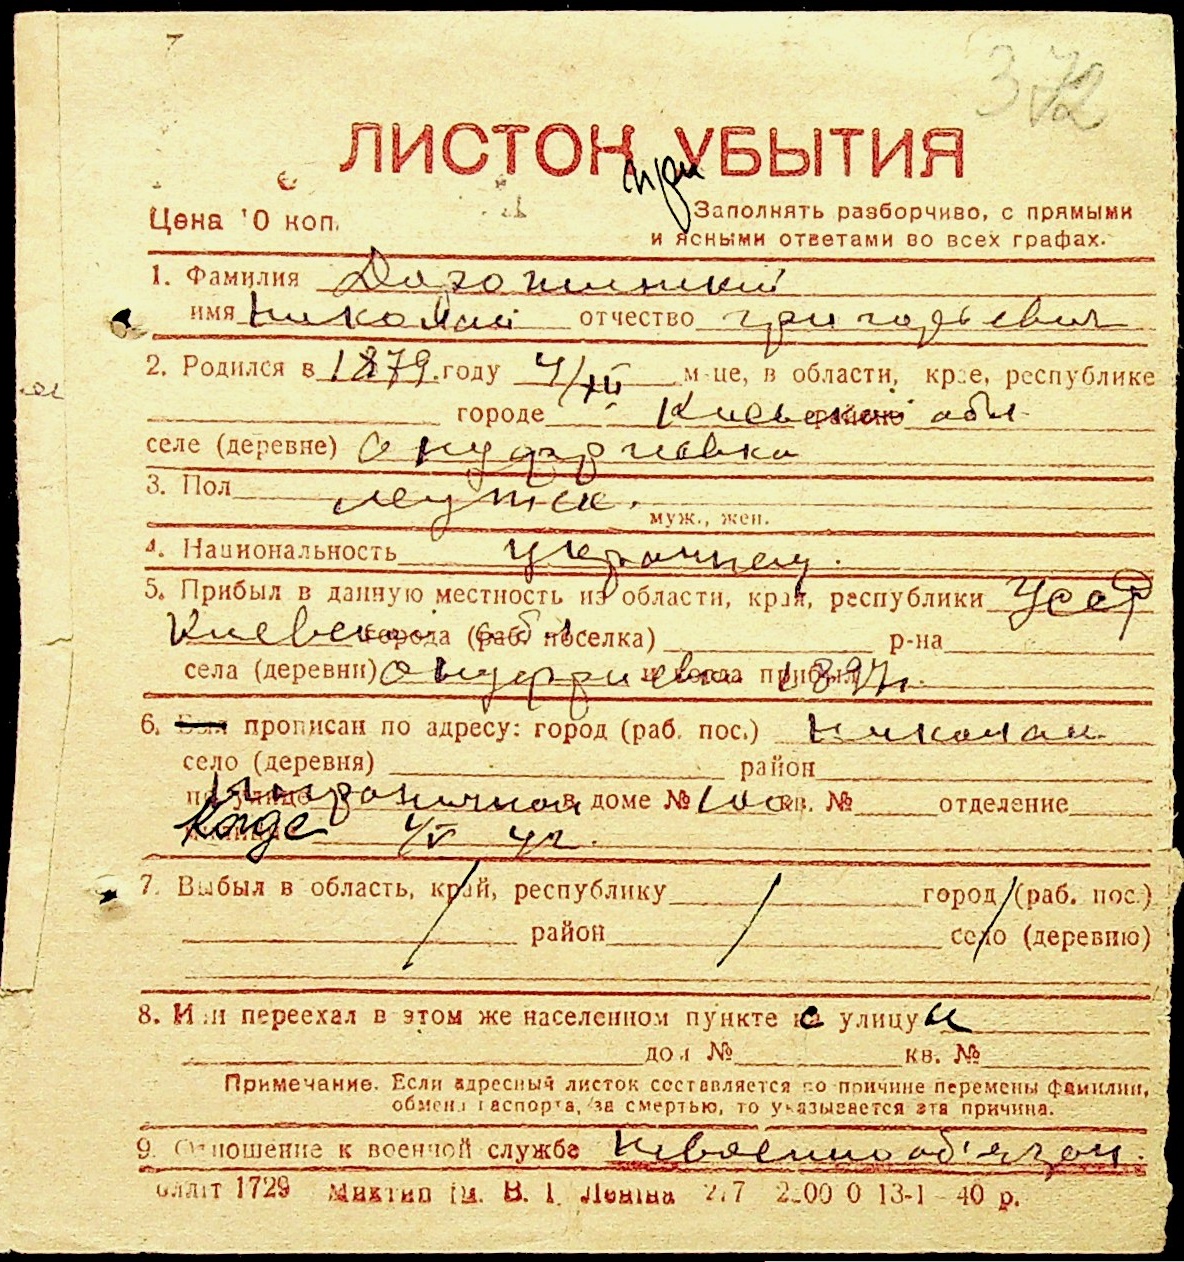 372
ЛИСТОК УБЫТИЯ
при
Цена 10 коп.
Заполнять разборчиво, с прямыми
и ясными ответами во всех графах.
1. Фамилия
имя Николай отчество григорьевич
2. Родился в 1879 году 4/XII м-це, в области, крае, республике
городе Киевской районе обл
селе (деревне) онуфриевка
3. Пол мужск.
муж., жен.
4. Национальность украинец.
5. Прибыл в данную местность из области, края, республики Усср
Киевской города (раб. поселка) обл р-на
села (деревни) онуфриевки и когда прибыл 1897г.
6. Был прописан по адресу: город (раб. пос.) Николаев
село (деревня) район
по улице в доме № 100 кв. № отделение
милиции
7. Выбыл в область, край, республику город (раб. пос.)
район село (деревню)
8. Или переехал в этом же населенном пункте с улицу и
дом № кв. №
Примечание. Если адресный листок составляется по причине перемены фамилии,
обмена паспорта, за смертью, то указывается эта причина.
9. Отношение к военной службе невоеннообязан.
1729 им. В. І. Леніна 13-1 40 р.